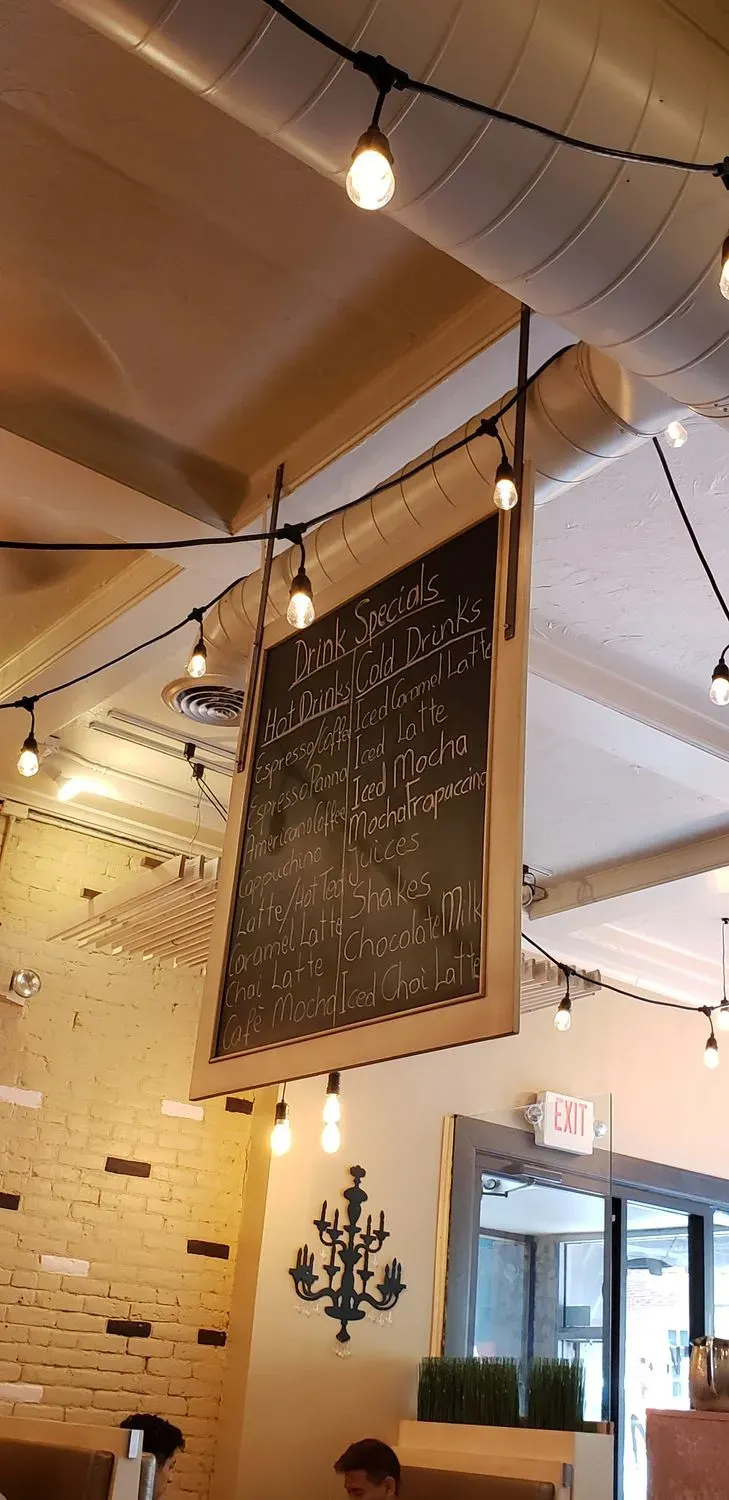 Drink Specials
Hot Drinks
Espresso/Coffee
Espresso Panna
Americano Coffee
Cappuchino
Latte/Hot Tea
Caramel Latte
Chai Latte
Cafè Mocha
Cold Drinks
Iced Caramel Latte
Iced Latte
Iced Mocha
Mocha Frapuccino
Juices
Shakes
Chocolate Milk
Iced Chai Latte
EXIT